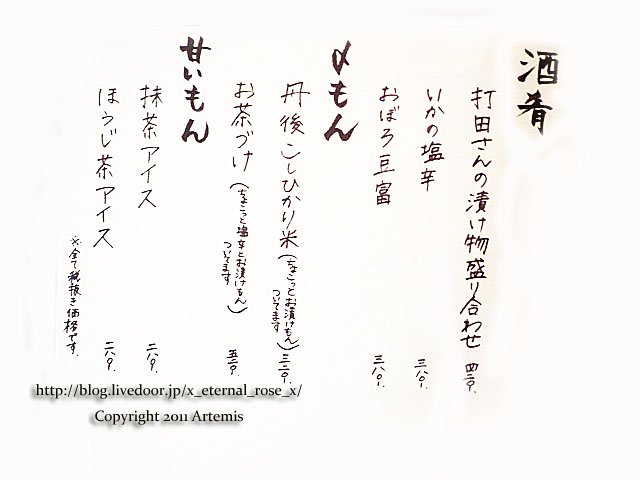 酒肴
打田さんの漬け物盛り合わせ 四二〇.
いかの塩辛 三八〇.
おぼろ豆富 三八〇.
〆もん
丹後こしひかり米(ちょこっとお漬けもんついてます) 三二〇.
お茶づけ(ちょこっと塩辛とお漬けもんついてます) 五二〇.
甘いもん
抹茶アイス 二八〇.
ほうじ茶アイス 二八〇.
※全て税抜き価格です.
http://blog.livedoor.jp/x_eternal_rose_x/
Copyright 2011 Artemis